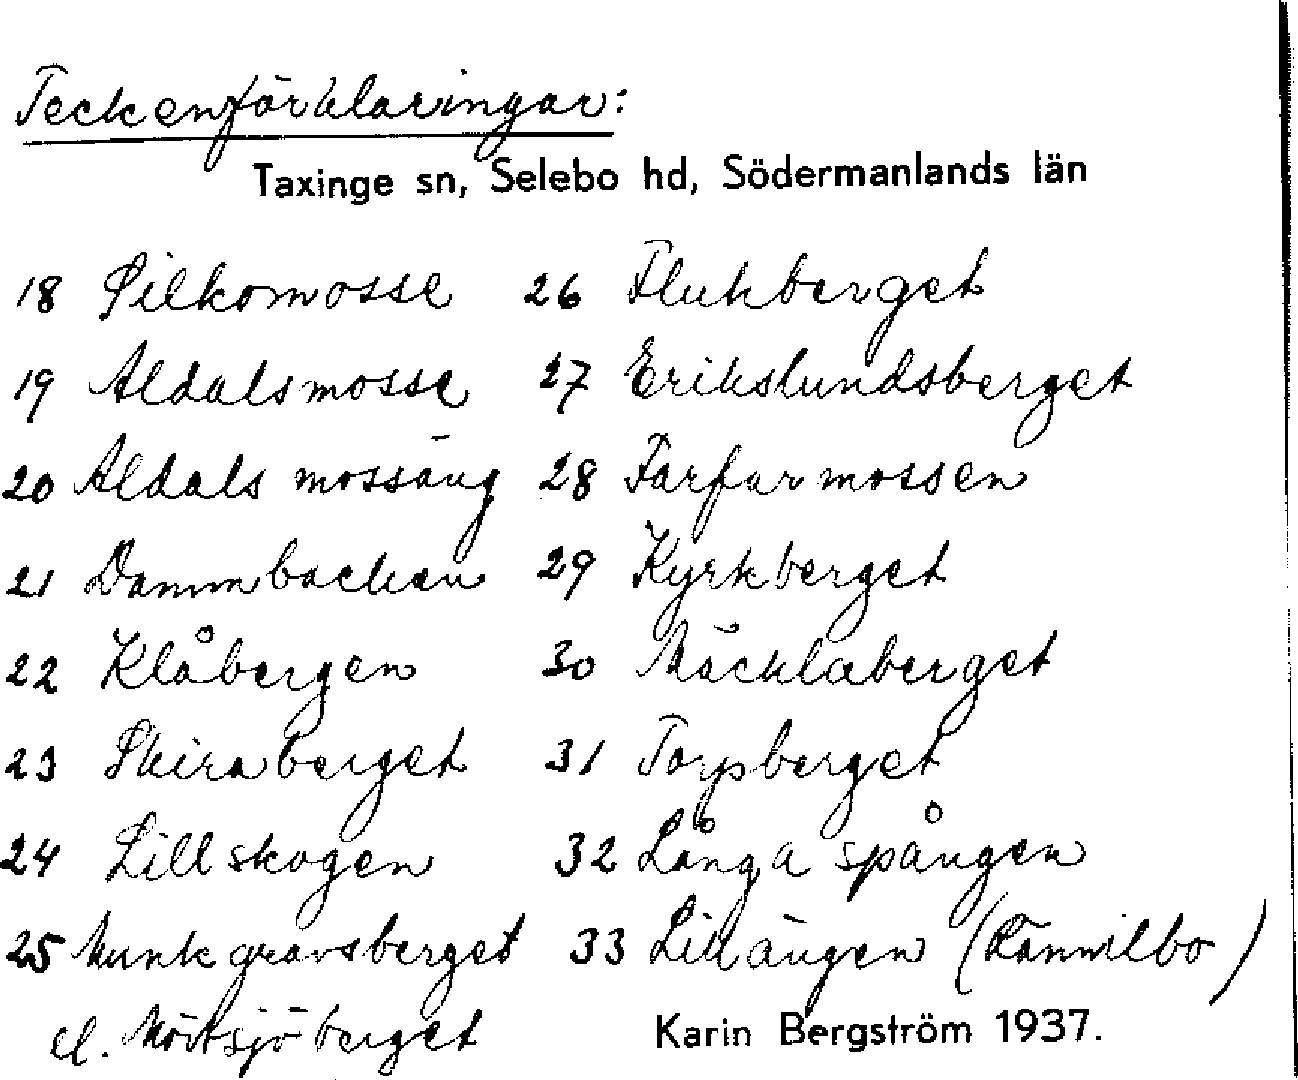 Teckenförklaringar:
Taxinge sn, Selebo hd, Södermanlands län
18 Silkomosse
19 Aldalsmosse
20 Aldals mossäng
21 Dammbacken
22 Klåbergen
23 Skiraberget
24 Lillskogen
25 Munkgravsberget
el. Mörtsjöberget
26 Flukberget
27 Erikslundsberget
28 Farfarmossen
29 Kyrkberget
30 Mäcklaberget
31 Torpberget
32 Långa spången
33 Lillängen
Karin Bergström 1937.